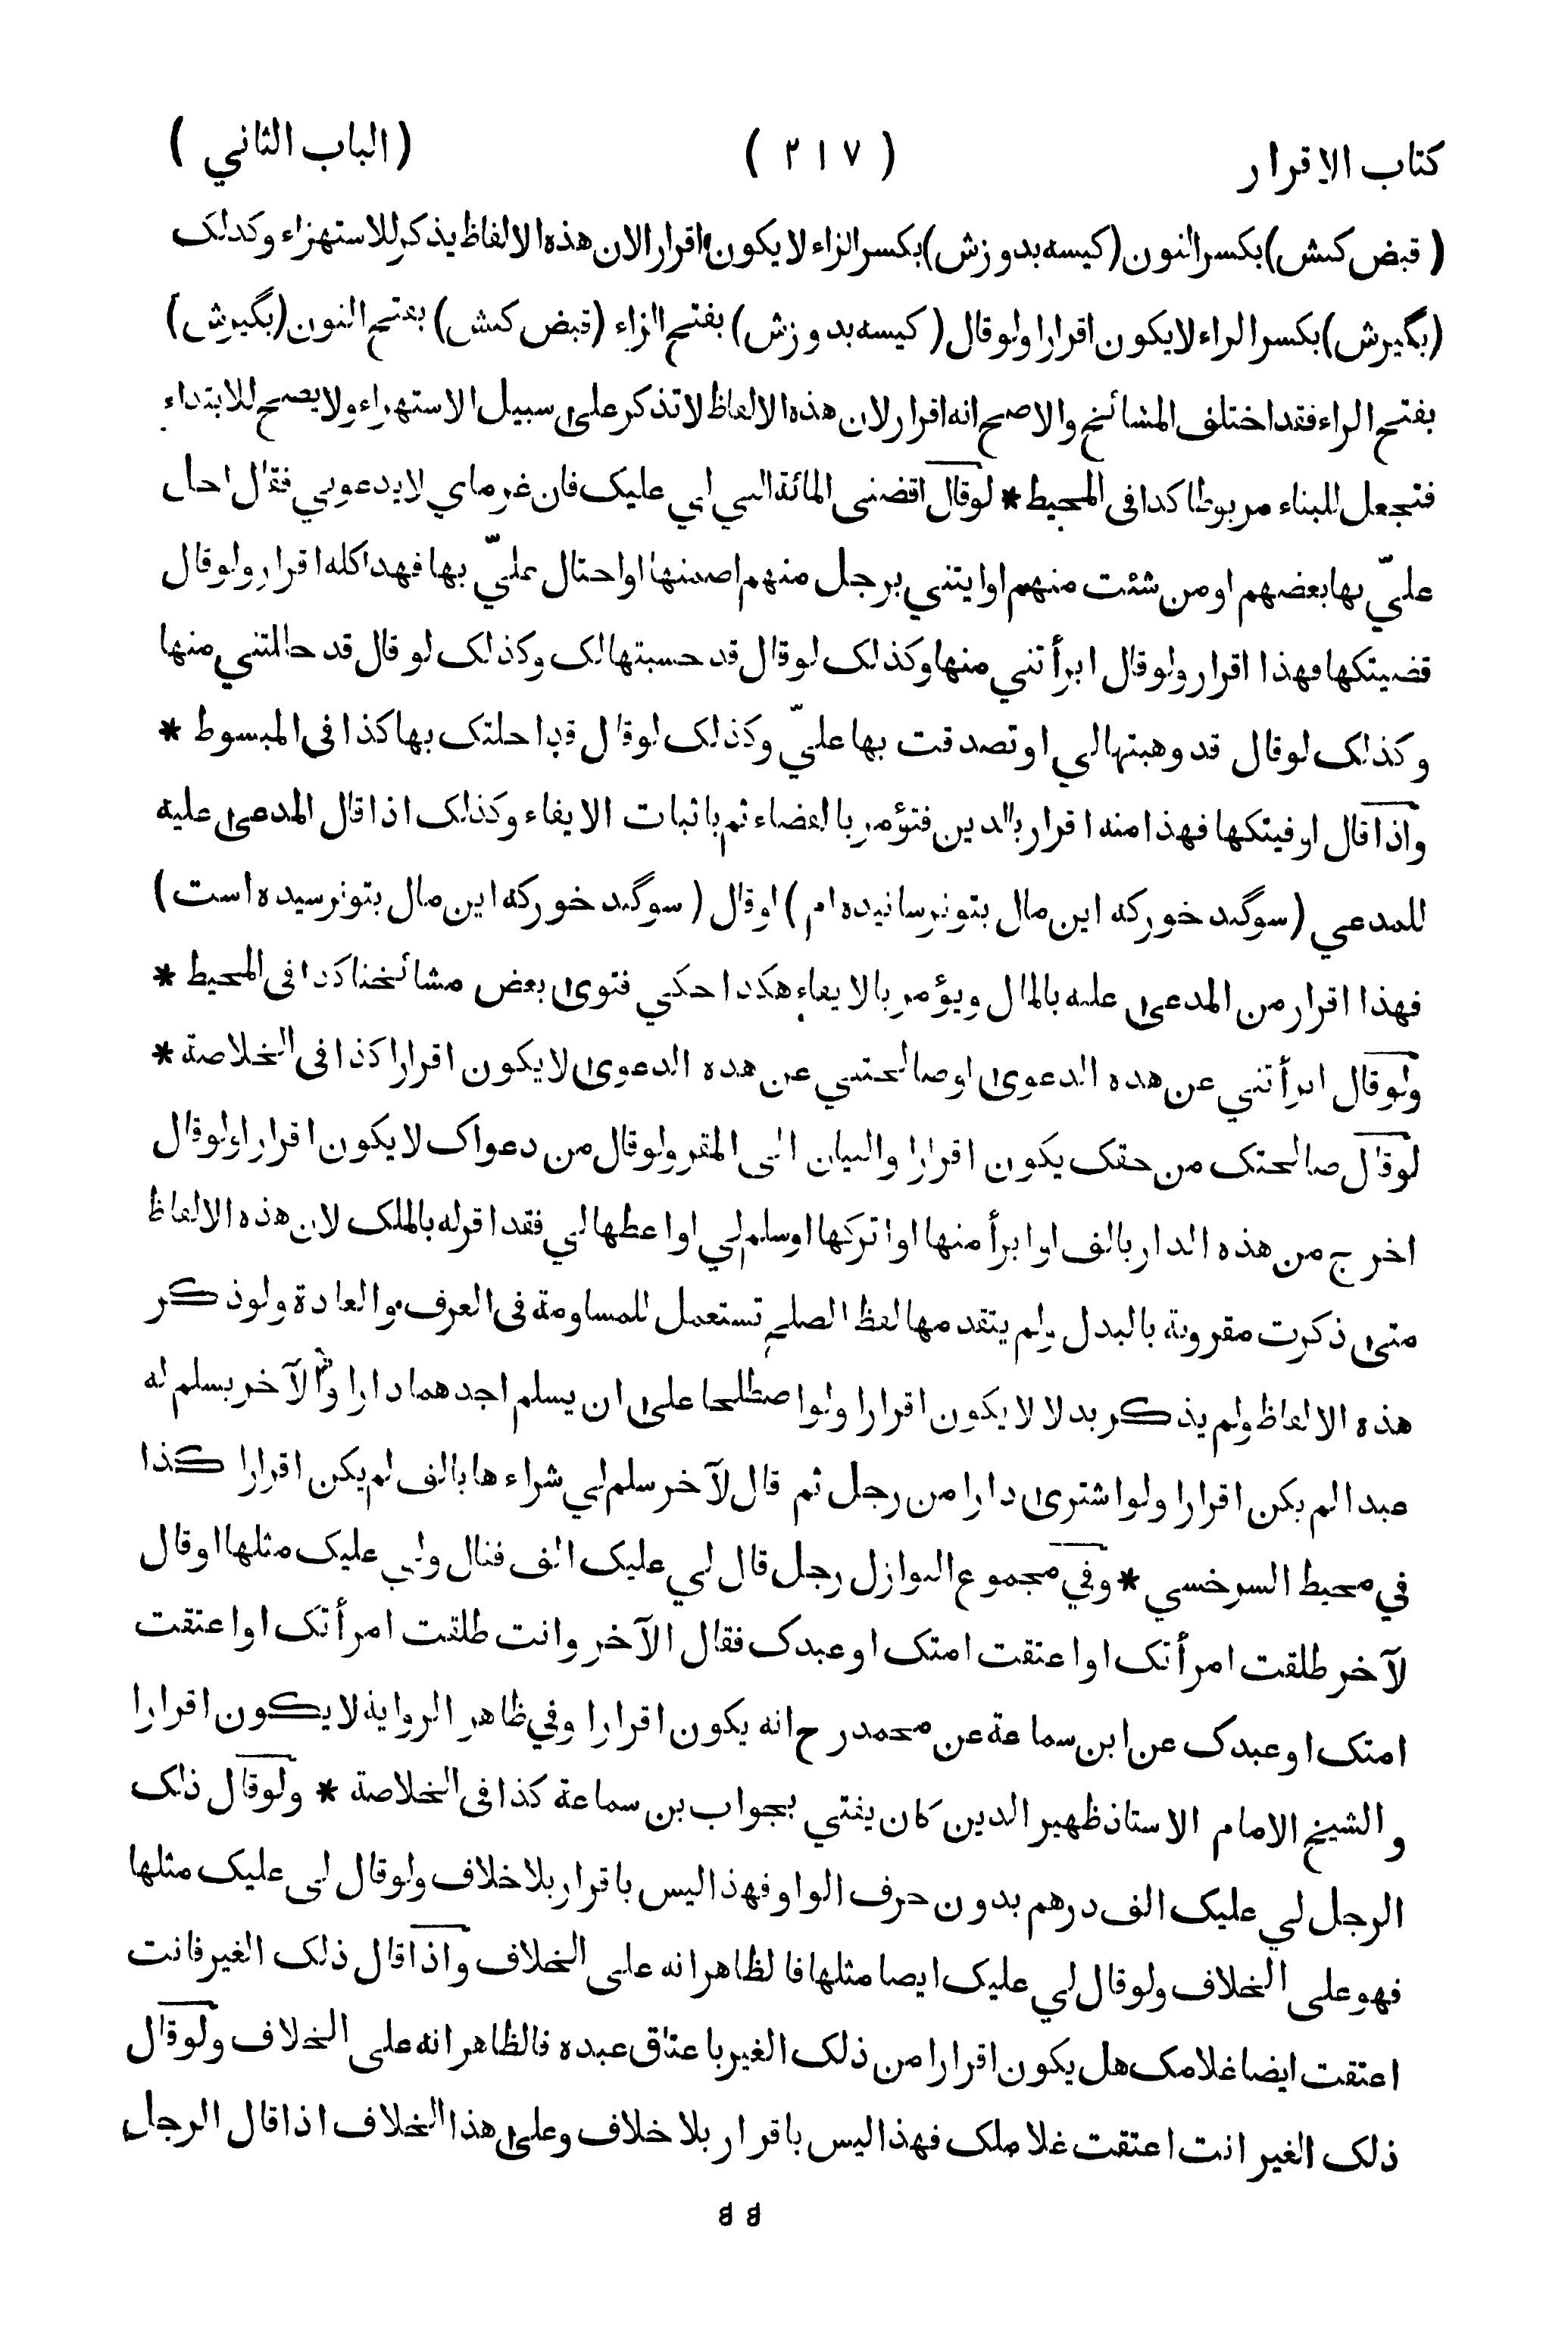 كتاب الاقرار ( ٢١٧ ) ( الباب الثاني )
( قبض كنش ) بكسر النون ( كيسه بدوزش ) بكسر الزاء لا يكون اقرارا لان هذه الالفاظ يذكر للاستهزاء وكذلك
( بگيرش ) بكسر الراء لا يكون اقرارا ولو قال ( كيسه بدوزش ) بفتح الزاء ( قبض كنش ) بفتح النون ( بگيرش )
بفتح الراء فقد اختلف المشائخ والاصح انه اقرار لان هذه الالفاظ لا تذكر على سبيل الاستهزاء ولا يصح للابتداء
فتجعل للبناء مربوطا كذا فى المحيط * لو قال اقضنى المائة التي لي عليك فان غرمائي لا يدعوني فقال احل
عليّ بها بعضهم او من شئت منهم او ايتني برجل منهم اضمنها او احتال عليّ بها فهذا كله اقرار ولو قال
قضيتكها فهذا اقرار ولو قال ابرأتني منها وكذلك لو قال قد حسبتها لك وكذلك لو قال قد حاللتني منها
وكذلك لو قال قد وهبتها لي او تصدقت بها عليّ وكذلك لو قال قد احلتك بها كذا فى المبسوط *
واذا قال اوفيتكها فهذا منه اقرار بالدين فتؤمر با لقضاء ثم باثبات الايفاء وكذلك اذا قال المدعى عليه
للمدعي ( سوگند خور كه اين مال بتو نرسانيده ام ) او قال ( سوگند خور كه اين مال بتو نرسيده است )
فهذا اقرار من المدعى عليه بالمال ويؤمر بالايفاء هكذا حكي فتوى بعض مشائخنا كذا فى المحيط *
ولو قال ابرأتني عن هذه الدعوى او صالحتني عن هذه الدعوى لا يكون اقرارا كذا فى الخلاصة *
لو قال صالحتك من حقك يكون اقرارا والبيان الى المقر ولو قال من دعواك لا يكون اقرارا ولو قال
اخرج من هذه الدار بالف او ابرأ منها او اتركها او سلم لي او اعطها لي فقد اقر له بالملك لان هذه الالفاظ
متى ذكرت مقرونة بالبدل ولم يتقدمها لفظ الصلح تستعمل للمساومة فى العرف والعادة ولو ذكر
هذه الالفاظ ولم يذكر بدلا لا يكون اقرارا ولو اصطلحا على ان يسلم احدهما دارا والآخر يسلم له
عبدا لم يكن اقرارا ولو اشترى دارا من رجل ثم قال لآخر سلم لي شراءها بالف لم يكن اقرارا كذا
في محيط السرخسي * وفي مجموع النوازل رجل قال لي عليك الف فقال ولي عليك مثلها او قال
لآخر طلقت امرأتك او اعتقت امتك او عبدك فقال الآخر وانت طلقت امرأتك او اعتقت
امتك او عبدك عن ابن سماعة عن محمد رح انه يكون اقرارا وفي ظاهر الرواية لا يكون اقرارا
والشيخ الامام الاستاذ ظهير الدين كان يفتي بجواب بن سماعة كذا فى الخلاصة * ولو قال ذلك
الرجل لي عليك الف درهم بدون حرف الواو فهذا ليس باقرار بلا خلاف ولو قال لي عليك مثلها
فهو على الخلاف ولو قال لي عليك ايضا مثلها فالظاهر انه على الخلاف واذا قال ذلك الغير فانت
اعتقت ايضا غلامك هل يكون اقرارا من ذلك الغير باعتاق عبده فالظاهر انه على الخلاف ولو قال
ذلك الغير انت اعتقت غلاملك فهذا ليس باقرار بلا خلاف وعلى هذا الخلاف اذا قال الرجل